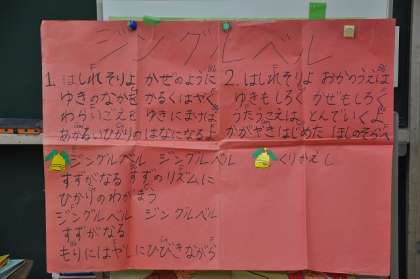 ジングルベル
1. はしれそりよ かぜのように
ゆきのなかを かるくはやく
わらいごえを ゆきにまけば
あかるいひかりの はなになるよ
2. はしれそりよ おかのうえは
ゆきもしろく かぜもしろく
うたうこえは とんでいくよ
かがやきはじめた ほしのそらへ
ジングルベル ジングルベル
すずがなる すずのリズムに
ひかりのわがまう
ジングルベル ジングルベル
すずがなる
もりにはやしにひびきながら
くりかえし